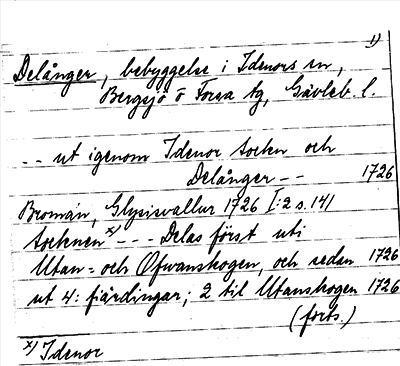 1)
Delånger, bebyggelse i Idenors sn,
Bergsjö o Forsa tg, Gävleb. l.
-- ut igenom Idenor socken och
Delånger -- 1726
Broman, Glysisvallur 1726 I:2 s. 141
socknen x) --- Delas först uti
Utan= och Ofwanskogen, och sedan 1726
ut 4: fiärdingar; 2 til Utanskogen 1726
(forts.)
x) Idenor